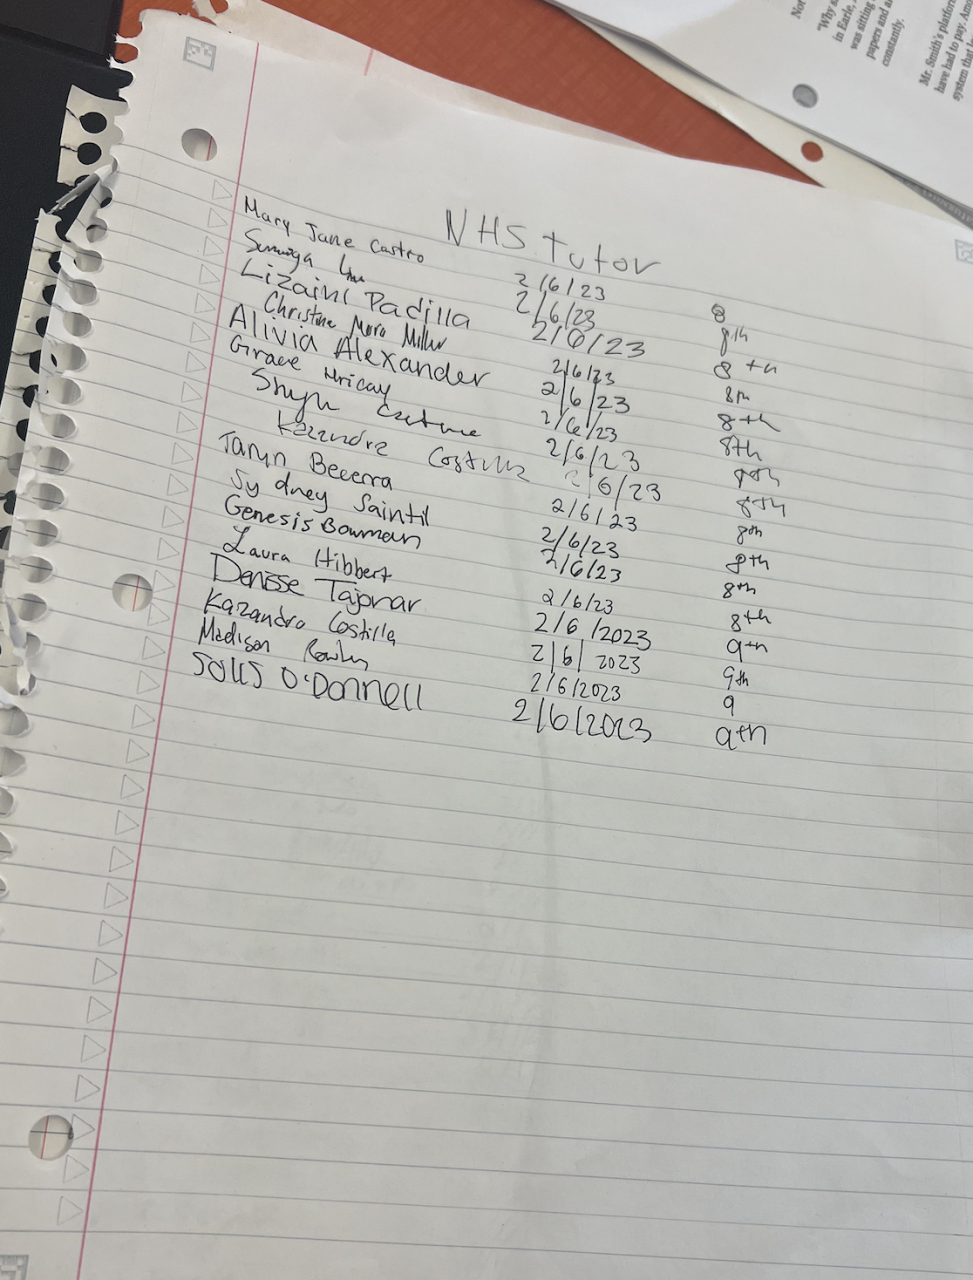 Not
"Why s
in Earle,
was sitting
papers and a
constantly.
Mr. Smith's platform
have had to pay. Am
system that
NHS tutor
Mary Jane Castro 2/6/23 8
2/6/23 8th
Lizaini Padilla 2/6/23 8th
Christine Mora Miller 2/6/23 8th
Alivia Alexander 2/6/23 8th
Grace 2/6/23 8th
2/6/23 8th
Kazandra Costilla 2/6/23 8th
Taryn Becerra 2/6/23 8th
Sydney Saintil 2/6/23 8th
Genesis Bowman 2/6/23 8th
Laura Hibbert 2/6/23 8th
Denisse Tajonar 2/6/2023 9th
Kazandra Costilla 2/6/2023 9th
Madison 2/6/2023 9
O'Donnell 2/6/2023 9th